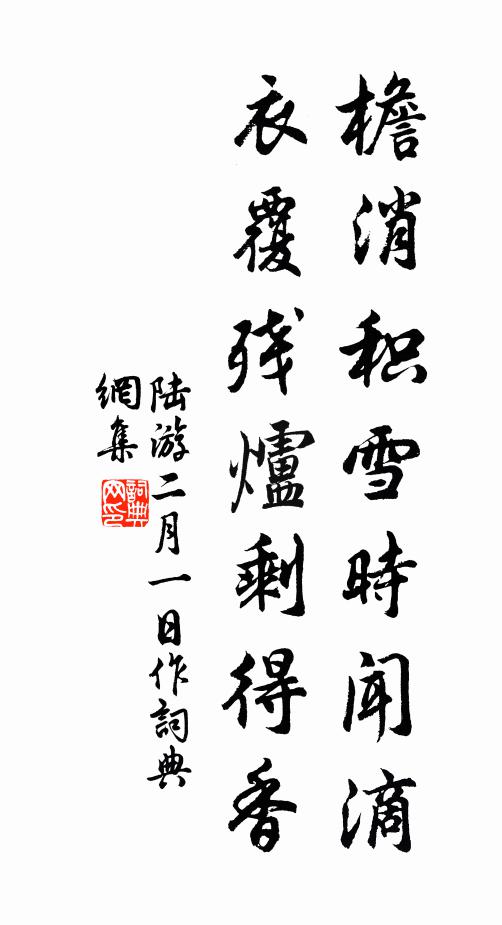 檐消积雪時闻滴
衣覆残爐剩得香
陆游二月一日作詞典
網集
詞典
网印